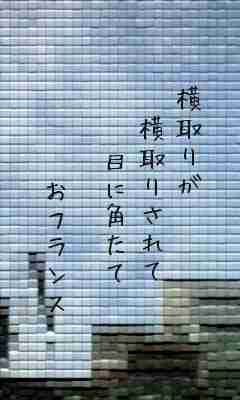 横取りが
横取りされて
目に角たて
おフランス